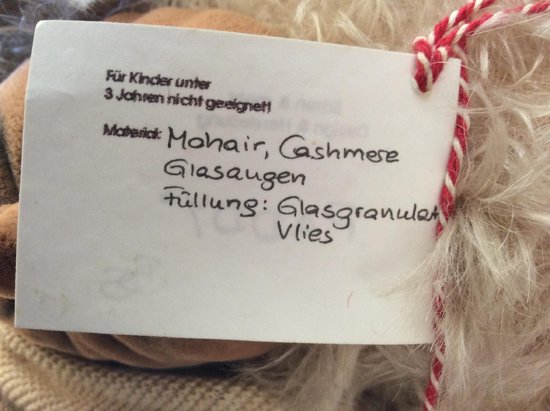 Für Kinder unter
3 Jahren nicht geeignet!
Material: Mohair, Cashmere
Glasaugen
Füllung: Glasgranulat
Vlies